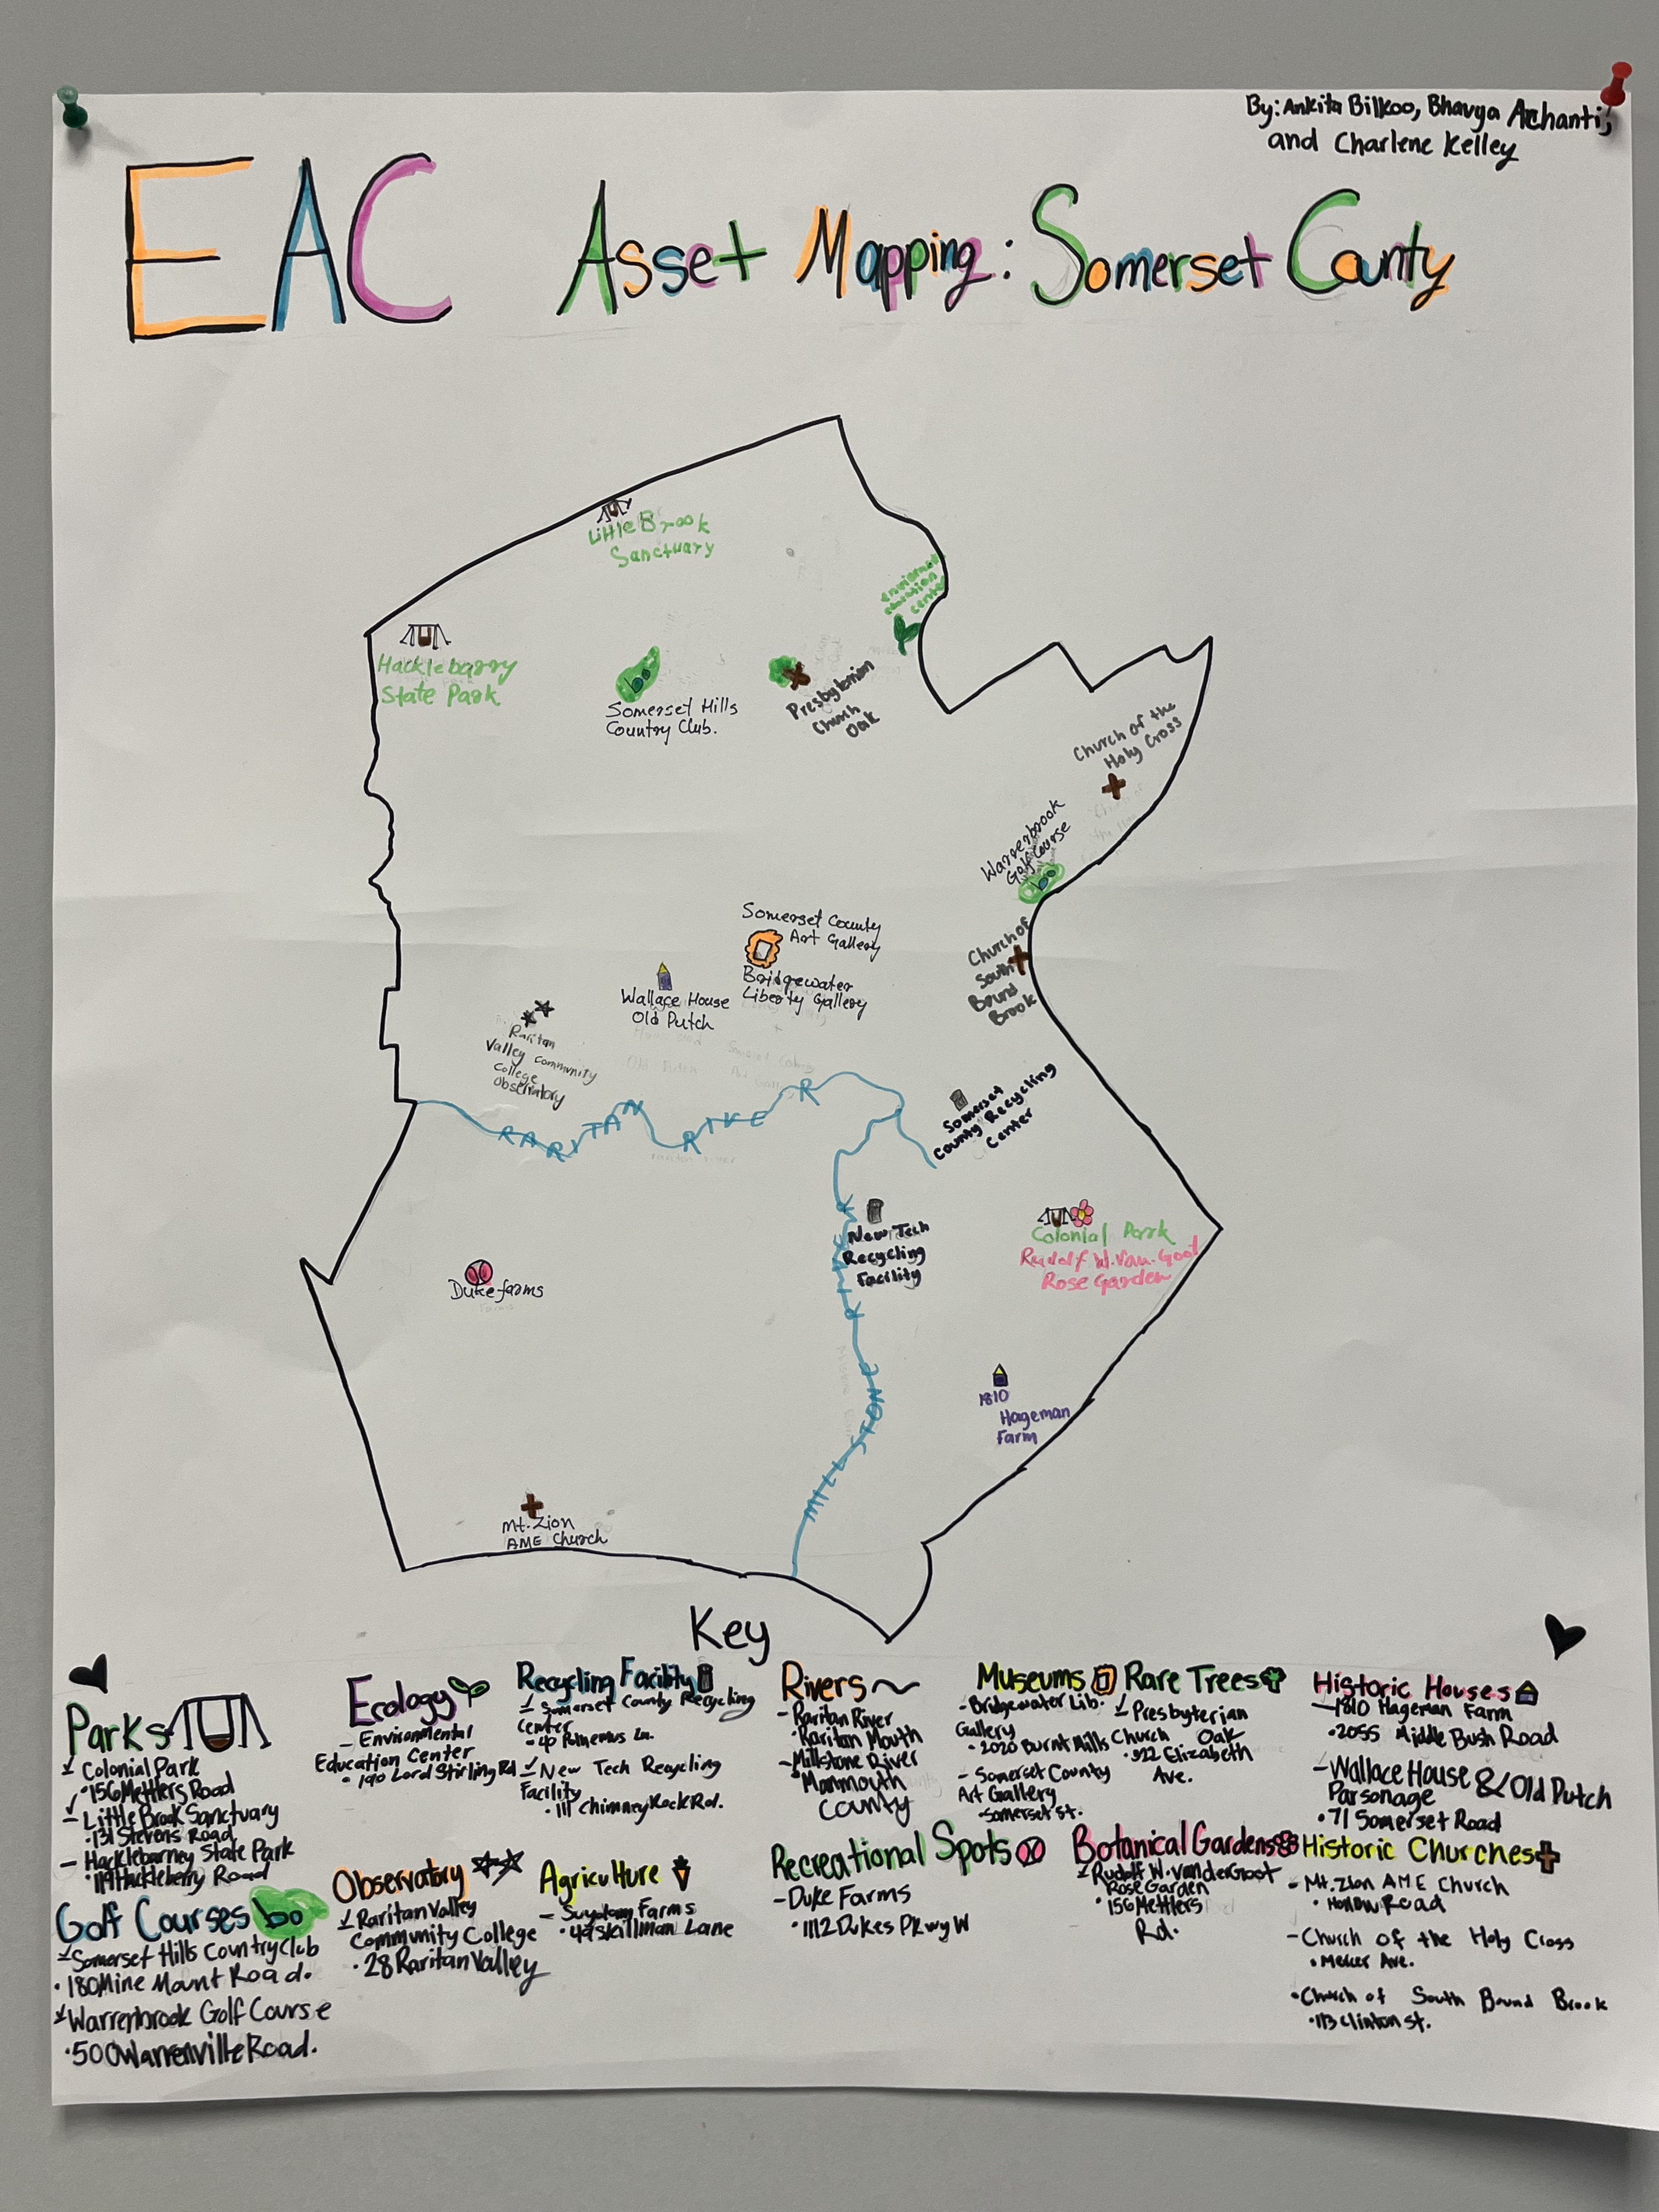 By: Ankita Bilkoo, Bhavya Achanti,
and Charlene Kelley
EAC Asset Mapping: Somerset County
Little Brook
Sanctuary
Center
Hacklebarry
State Park
Somerset Hills
Country Club.
Presbyterian
Church
Oak
Church of the
Holy Cross
Warrenbrook
Golf Course
Somerset County
Art Gallery
Bridgewater
Liberty Gallery
Church of
South
Bound
Brook
Wallace House
Old Dutch
Raritan
Valley Community
College
Observatory
RARITAN RIVER
Somerset
County Recycling
Center
New Tech
Recycling
Facility
Colonial Park
Rudolf W. Van. Goot
Rose Garden
Duke farms
MILLSTONE RIVER
1810
Hageman
Farm
Mt. Zion
AME Church
Key
Parks
Colonial Park
• 156 Mettlers Road
- Little Brook Sanctuary
• 131 Stevens Road
- Hacklebarney State Park
• 119 Hackleberry Road
Golf Courses
Somerset Hills Country Club
• 180 Mine Mount Road.
Warrenbrook Golf Course
• 500 Warrenville Road.
Ecology
- Environmental
Education Center
• 190 Lord Stirling Rd
Observatory
Raritan Valley
Community College
• 28 Raritan Valley
Recycling Facility
- Somerset County Recycling
Center
• 40 Polhemus Ln.
- New Tech Recycling
Facility
• 111 Chimney Rock Rd.
Agriculture
- Suydam Farms
• 49 Skillman Lane
Rivers
- Raritan River
• Raritan Mouth
- Millstone River
• Monmouth
County
Recreational Spots
- Duke Farms
• 1112 Dukes Pkwy W
Museums
- Bridgewater Lib.
Gallery
• 2020 Burnt Mills
- Somerset County
Art Gallery
• Somerset St.
Rare Trees
- Presbyterian
Church Oak
• 322 Elizabeth
Ave.
Botanical Gardens
Rudolf W. vanderGoot
Rose Garden
• 156 Mettlers
Rd.
Historic Houses
- 1810 Hageman Farm
• 2055 Middle Bush Road
- Wallace House & Old Dutch
Parsonage
• 71 Somerset Road
Historic Churches
- Mt. Zion AME Church
• Hollow Road
- Church of the Holy Cross
• Mercer Ave.
• Church of South Bound Brook
• 113 Clinton St.